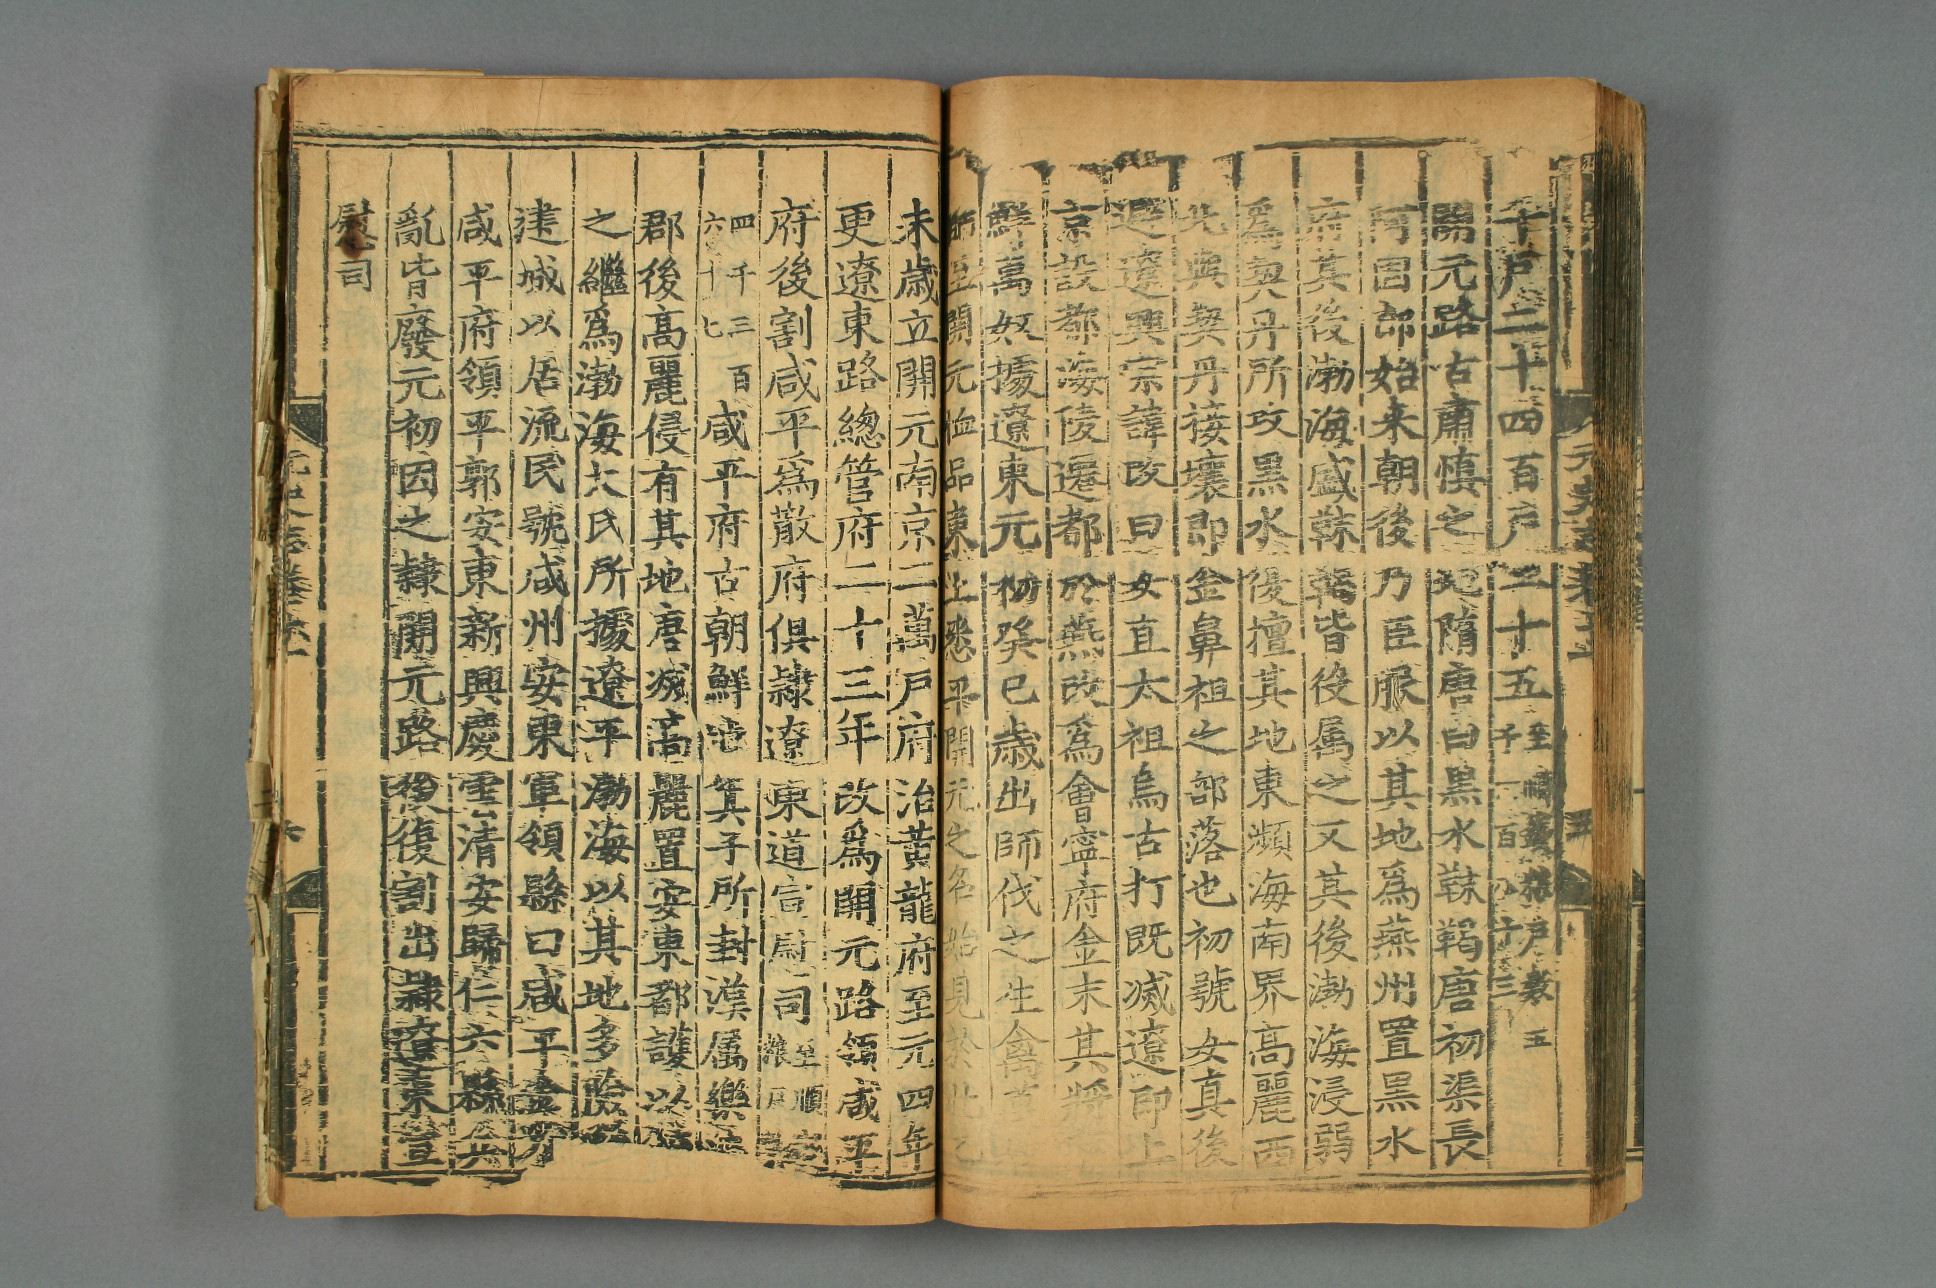 千戶二十四百戶二十五
開元路古肅慎之地隋唐曰黑水靺鞨唐初渠長
阿固郎始来朝後乃臣服以其地爲燕州置黑水
府其後渤海盛靺鞨皆役属之又其後渤海浸弱
爲契丹所攻黑水復擅其地東瀕海南界高麗西
北與契丹接壤即金鼻祖之部落也初號女真後
避遼興宗諱改曰女直太祖烏古打既滅遼即上
京設都海陵遷都於燕改爲會寧府金末其將
鮮萬奴據遼東元初癸巳歲出師伐之生禽
師至開元恤品東土悉平開元之名始見於此乙
未歲立開元南京二萬戶府治黃龍府至元四年
更遼東路總管府二十三年改爲開元路領咸平
府後割咸平爲散府俱隷遼東道宣慰司
四千三百
六十七
咸平府古朝鮮地箕子所封漢属樂
郡後高麗侵有其地唐滅高麗置安東都護以
之繼爲渤海大氏所據遼平渤海以其地多險
建城以居流民號咸州安東軍領縣曰咸平金
咸平府領平郭安東新興慶雲清安歸仁六縣
亂皆廢元初因之隷開元路後復割出隷遼東宣
慰司